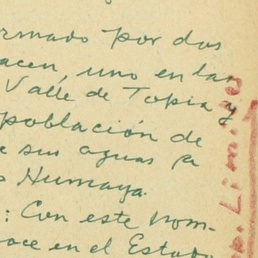 rmado por dos
acen, uno en la
Valle de Topia y
población de
sus aguas
Humaya.
: Con este nom-
oce en el Estado